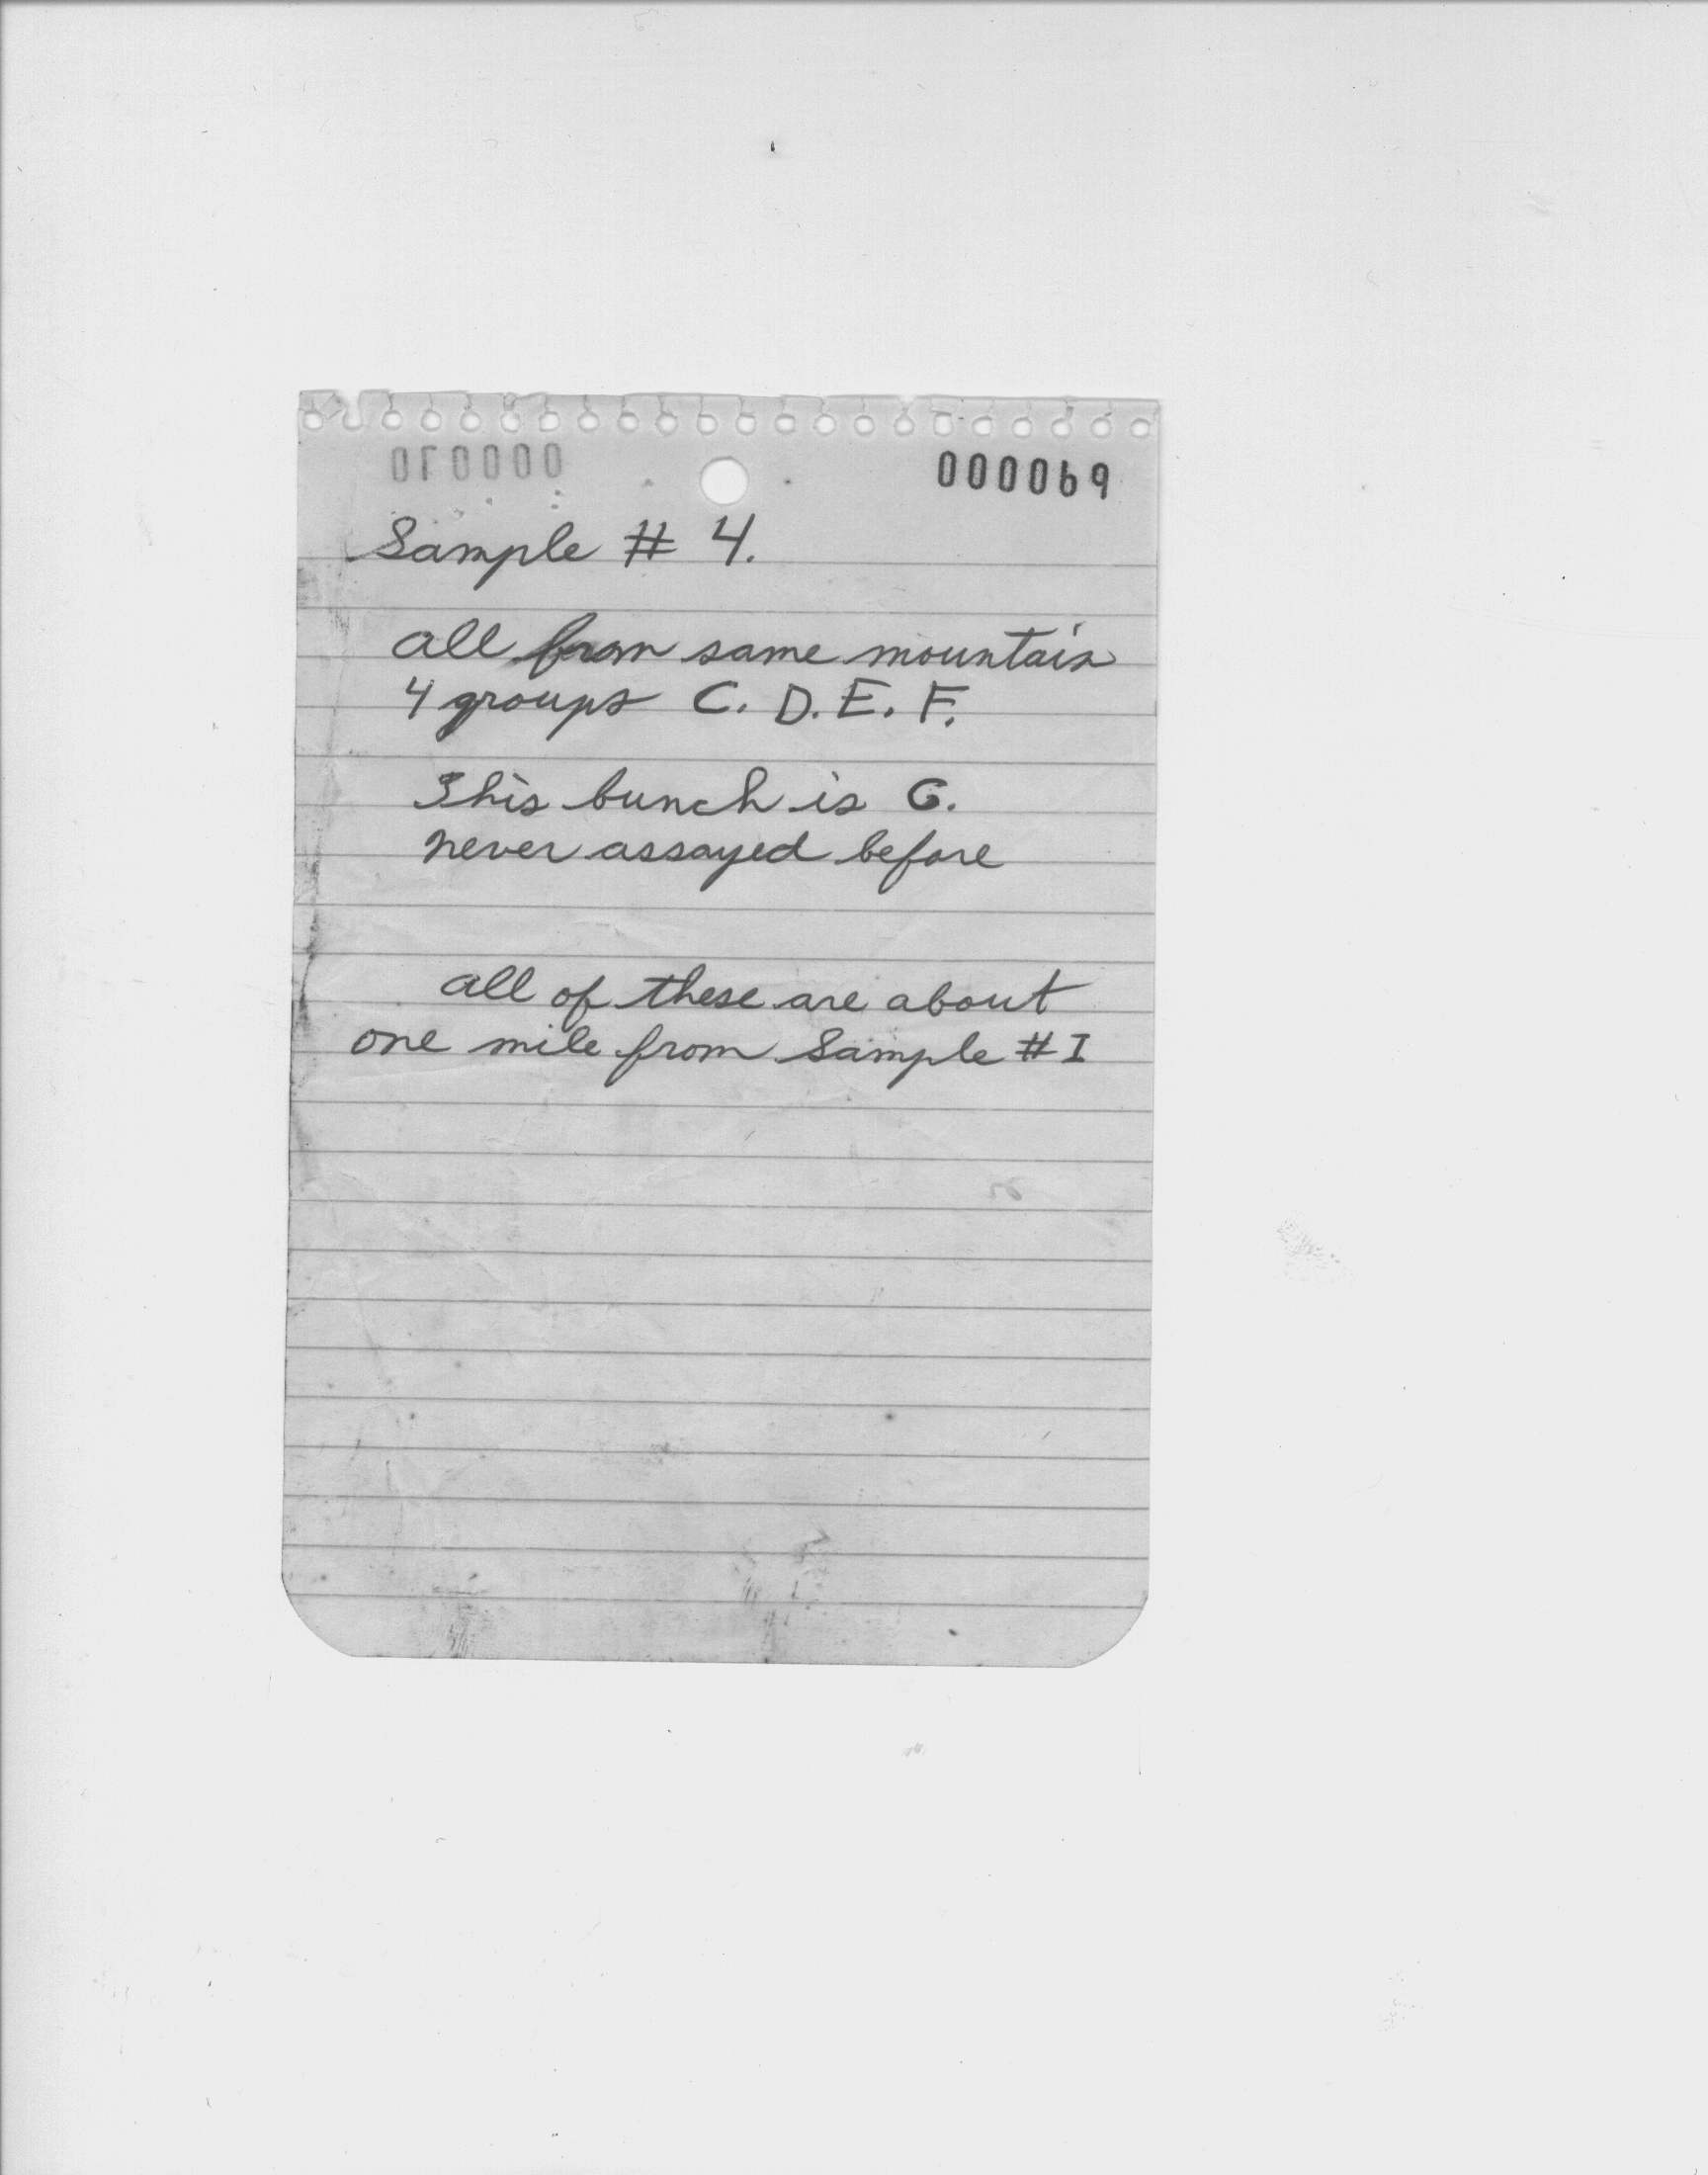 000070 000069
Sample # 4.
all from same mountain
4 groups C. D. E. F.
This bunch is
never assayed before
all of these are about
one mile from Sample # I